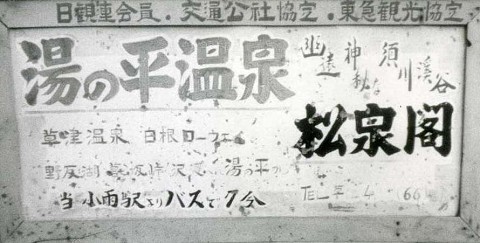 日観連会員・交通公社協定・東急観光協定
湯の平温泉
幽遠神秘な須川渓谷
松泉閣
草津温泉 白根ロープウェイ
野反湖 湯の平
当小雨駅よりバスで7分
TEL 草 4 66